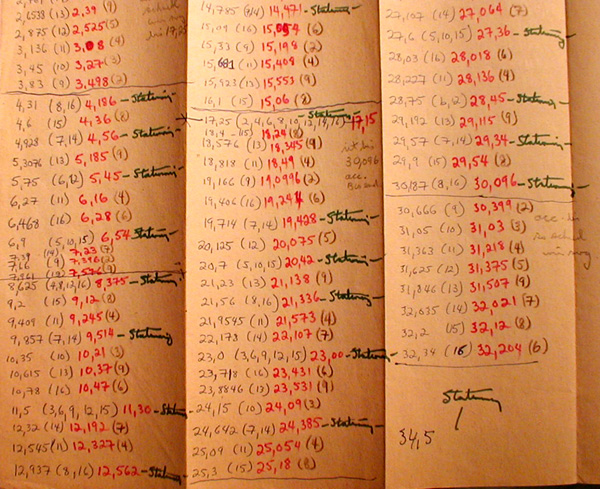 2,6538 (13) 2,39 (9)
2,875 (12) 2,525 (5)
3,136 (11) 3,08 (4)
3,45 (10) 3,27 (3)
3,83 (9) 3,498 (2)
4,31 (8,16) 4,186 - Stateruing
4,6 (15) 4,36 (8)
4,928 (7,14) 4,56 - Stateruing
5,3076 (13) 5,185 (9)
5,75 (6,12) 5,45 - Stateruing
6,27 (11) 6,16 (4)
6,468 (16) 6,28 (6)
6,9 (5,10,15) 6,54 Stateruing
7,39 (14) 7,23 (7)
7,66 (9) 7,396 (2)
7,961 (13) 7,576 (9)
8,625 (4,8,12,16) 8,375 - Stateruing
9,2 (15) 9,12 (8)
9,409 (11) 9,245 (4)
9,857 (7,14) 9,514 - Stateruing
10,35 (10) 10,21 (3)
10,615 (13) 10,37 (9)
10,78 (16) 10,47 (6)
11,5 (3,6,9,12,15) 11,30 - Stateruing
12,32 (14) 12,192 (7)
12,545 (11) 12,327 (4)
12,937 (8,16) 12,562 - Stateruing
14,785 (14) 14,471 - Stateruing
15,09 (16) 15,054 (6)
15,33 (9) 15,198 (2)
15,681 (11) 15,408 (4)
15,923 (13) 15,553 (9)
16,1 (15) 15,06 (8)
17,25 (2,4,6,8,10,12,14,16) 17,15
Stateruing
18,4 (15) 18,24 (8)
18,576 (13) 18,345 (9)
18,818 (11) 18,49 (4)
30,096
acc.
19,166 (9) 19,0996 (2)
19,406 (16) 19,244 (6)
19,714 (7,14) 19,428 - Stateruing
20,125 (12) 20,075 (5)
20,7 (5,10,15) 20,42 - Stateruing
21,23 (13) 21,138 (9)
21,56 (8,16) 21,336 - Stateruing
21,9545 (11) 21,573 (4)
22,178 (14) 22,107 (7)
23,0 (3,6,9,12,15) 23,00 - Stateruing
23,718 (16) 23,431 (6)
23,8846 (13) 23,531 (9)
24,15 (10) 24,09 (3)
24,642 (7,14) 24,385 - Stateruing
25,09 (11) 25,054 (4)
25,3 (15) 25,18 (8)
27,107 (14) 27,064 (7)
27,6 (5,10,15) 27,36 - Stateruing
28,03 (16) 28,018 (6)
28,227 (11) 28,136 (4)
28,75 (6,12) 28,45 - Stateruing
29,192 (13) 29,115 (9)
29,57 (7,14) 29,34 - Stateruing
29,9 (15) 29,54 (8)
30,187 (8,16) 30,096 - Stateruing
30,666 (9) 30,399 (2)
31,05 (10) 31,03 (3)
31,363 (11) 31,218 (4)
31,625 (12) 31,375 (5)
31,846 (13) 31,507 (9)
32,035 (14) 32,021 (7)
32,2 (15) 32,12 (8)
32,34 (16) 32,204 (6)
Stateruing
34,5